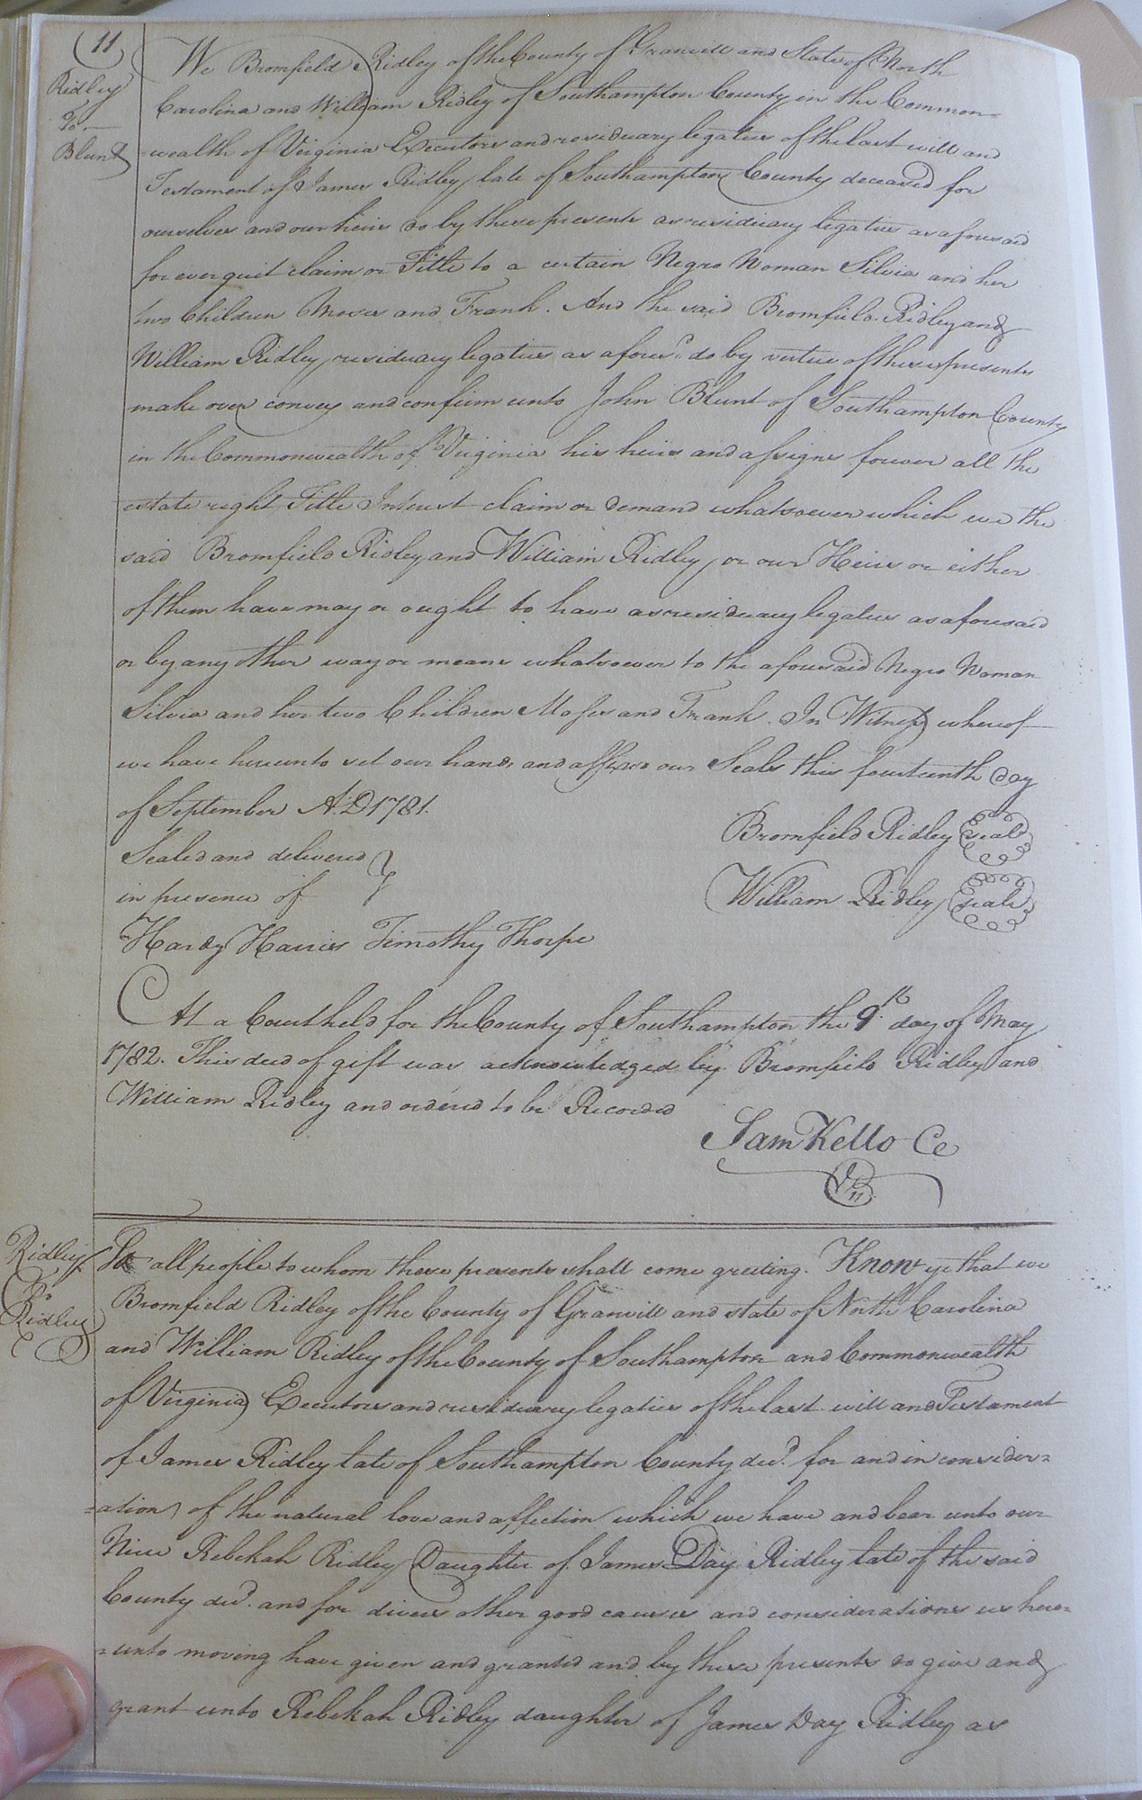 11
Ridley
To
Blunt
We Bromfield Ridley of the County of Granvill and State of North
Carolina and William Ridley of Southampton County in the Common=
wealth of Virginia Executors and residuary legatees of the last will and
Testament of James Ridley late of Southampton County deceased for
ourselves and our heirs do by these presents as residuary legatees as aforesaid
for ever quit claim or Title to a certain Negro Woman Silvia and her
two Children Moses and Frank. And the said Bromfield Ridley and
William Ridley residuary legatees as afores.d do by vertue of these presents
make over convey and confirm unto John Blunt of Southampton County
in the Commonwealth of Virginia his heirs and assigns forever all the
estate right Title Interest claim or demand whatsoever which we the
said Bromfield Ridley and William Ridley or our Heirs or either
of them have may or ought to have as residuary legatees as aforesaid
or by any other way or means whatsoever to the aforesaid Negro Woman
Silvia and her two Children Moses and Frank. In Witness whereof
we have hereunto set our hands and affixed our Seals this fourteenth day
of September A.D 1781.
Bromfield Ridley seal
Sealed and delivered
William Ridley seal
in presence of
Hardy Harris Timothy Thorpe
At a Court held for the County of Southampton the 9th day of May
1782. This deed of gift was acknowledged by Bromfield Ridley and
William Ridley and ordered to be Recorded
Sam Kello Cc
Ridley
To
Ridley
To all people to whom these presents shall come greeting. Know ye that we
Bromfield Ridley of the County of Granvill and state of North Carolina
and William Ridley of the County of Southampton and Commonwealth
of Virginia Executors and residuary legatees of the last will and Testament
of James Ridley late of Southampton County dec.d for and in consider=
=ation of the natural love and affection which we have and bear unto our
Niece Rebekah Ridley Daughter of James Day Ridley late of the said
County dec.d and for divers other good causes and considerations us here=
=unto moving have given and granted and by these presents do give and
grant unto Rebekah Ridley daughter of James Day Ridley as